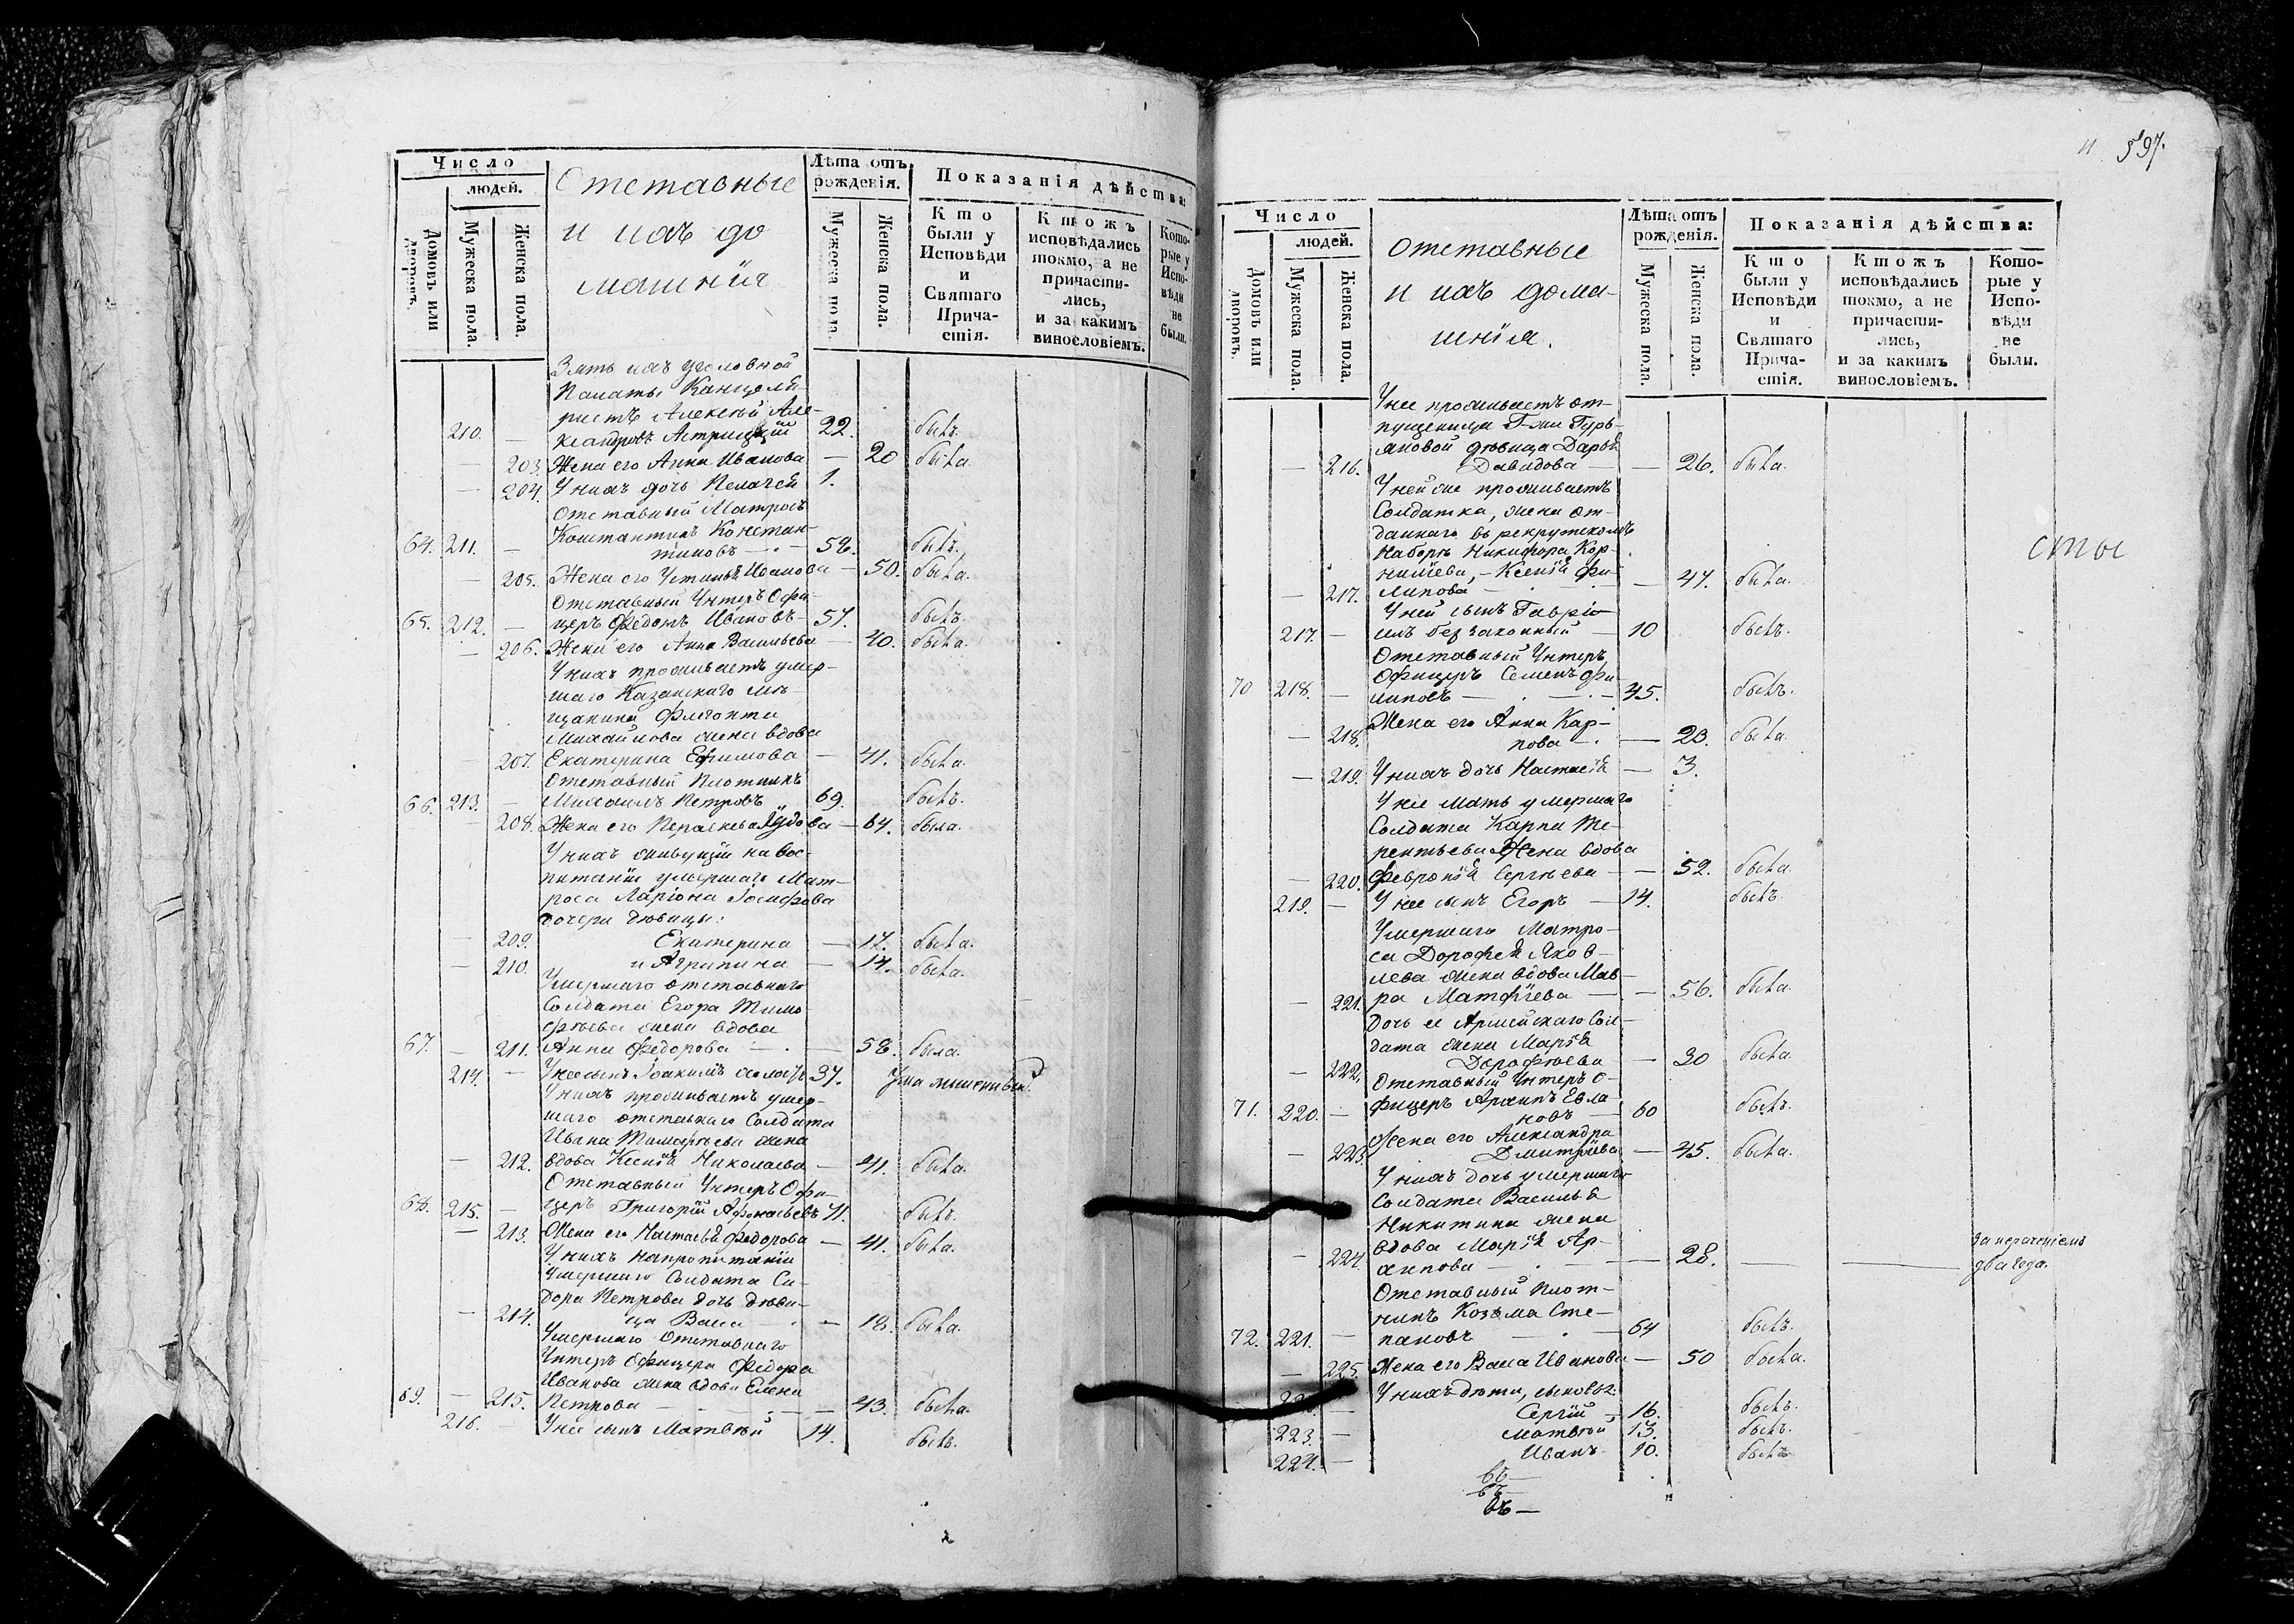 Число
людей.
Домовъ или дворовъ.
Мужеска пола.
Женска пола.
Отставные
и ихъ до
машнія
Лѣта отъ рожденія.
Мужеска пола.
Женска пола.
Показанія дѣйства:
Кто были у Исповѣди и Святаго Прича-стія.
Ктожъ исповѣдались токмо, а не причасти-лись, и за какимъ винословіемъ.
Кото-рые у Испо-вѣди не были.
Зять ихъ уголовной
Палаты Канцеля-
ристъ Алексѣй Але-
210. — ксандровъ 22. былъ.
— 203. Жена его Анна Иванова — 20 была.
— 204. У нихъ дочь Пелагея 1.
Отставный Матросъ
Константинъ Констан-
64. 211. — тиновъ — 58. былъ.
— 205. Жена его Устинья Иванова — 50. была.
Отставный Унтеръ Офи-
65. 212. — церъ Федотъ Ивановъ — 57. былъ.
— 206. Жена его Анна Васильева — 40. была.
У нихъ проживаетъ умер-
шаго Казанскаго мѣ-
щанина
Михайлова жена вдова
— 207. Екатерина Ефимова — 41. была.
Отставный Плотникъ
66. 213. — Михаилъ Петровъ 69. былъ.
— 208. Жена его Параскева — 64. была.
У нихъ живущія на вос-
питаніи умершаго Мат-
роса Ларіона Іосифова
дочери дѣвицы:
— 209. Екатерина — 17. была.
— 210. и Агрипина — 14. была.
Умершаго отставнаго
Солдата Егора Тимо-
фѣева жена вдова
67. — 211. Анна Федорова — 58. была.
214. — У нее сынъ Іоакимъ холостъ 37. Ума лишенный.
У нихъ проживаетъ умер-
шаго отставнаго Солдата
Ивана Тимофѣева жена
— 212. вдова Ксенія Николаева — 41. была.
Отставный Унтеръ Офи-
68. 215. — церъ Григорій Афонасьевъ 71. былъ.
— 213. Жена его Настасья Федорова — 41. была.
У нихъ на пропитаніи
Умершаго Солдата Си-
дора Петрова дочь дѣви-
— 214. ца Васса — 18. была.
Умершаго Отставнаго
Унтеръ Офицера Федора
Иванова жена вдова Елена
69. — 215. Петрова — 43. была.
216. У нее сынъ Матвѣй 14. былъ.
597.
Число
людей.
Домовъ или дворовъ.
Мужеска пола.
Женска пола.
отставные
и ихъ дома-
шнія.
Лѣта отъ рожденія.
Мужеска пола.
Женска пола.
Показанія дѣйства:
Кто были у Исповѣди и Святаго Прича-стія.
Ктожъ исповѣдались токмо, а не причасти-лись, и за какимъ винословіемъ.
Кото-рые у Испо-вѣди не были.
У нее проживаетъ от-
пущеница Г-жи Гурь-
яновой дѣвица Дарья
— 216. Давидова — 26. была.
У ней же проживаетъ
Солдатка, жена от-
даннаго въ рекрутскомъ
наборѣ Никифора Кор-
нилѣева, – Ксенія Фи-
— 217. липова — 47. была.
У ней сынъ Гавріи-
217. — илъ беззаконный — 10 былъ.
Отставный Унтеръ
Офицеръ Семенъ Фи-
70 218. — липовъ — 45. былъ.
Жена его Анна Кар-
— 218. пова — 23. была.
— 219. У нихъ дочь Настасія — 3.
У нее мать умершаго
Солдата Карпа Те-
рентьева Жена вдова
— 220. Февронія Сергѣева — 52. была.
219. — У нее сынъ Егоръ — 14. былъ.
Умершаго Матро-
са Дорофея Яков-
лева жена вдова Мав-
— 221. ра Матфіева — 56. была.
Дочь ее Армейскаго Сол-
дата жена Марія
— 222. Дорофѣева — 30 была.
Отставный Унтеръ О-
71. 220. — фицеръ Архипъ
новъ — 60 былъ.
Жена его Александра
— 223. Дмитріева — 45. была.
У нихъ дочь умершаго
Солдата Василья
Никитина жена
вдова Марія Ар-
— 224. хипова — 28. — — за нераченіемъ два года.
Отставный Плот-
никъ Козьма Сте-
72. 221. — пановъ — 64 былъ.
— 225. Жена его Васса Иванова — 50 была.
У нихъ дѣти, сыновья:
— Сергій — 16. былъ.
223. — Матвѣй 13. былъ.
224. — Иванъ 10. былъ
въ —
въ —
въ —
сты